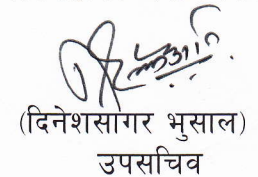 (दिनेशसागर भुसाल)
उपसचिव